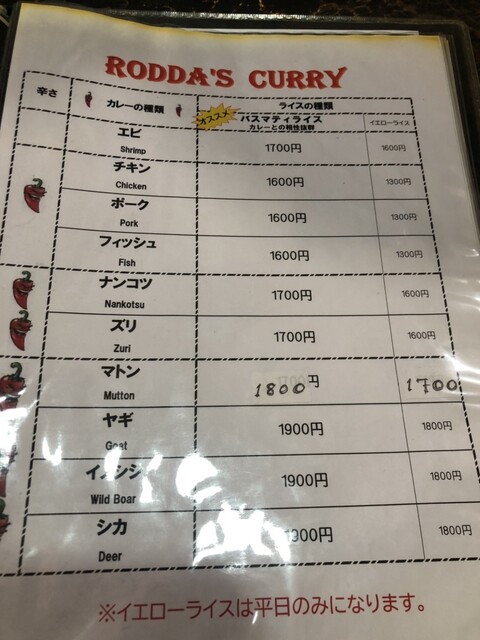 RODDA'S CURRY
辛さ カレーの種類 ライスの種類
オススメ バスマティライス イエローライス
カレーとの相性抜群
エビ
Shrimp 1700円 1600円
チキン
Chicken 1600円 1300円
ポーク
Pork 1600円 1300円
フィッシュ
Fish 1600円 1300円
ナンコツ
Nankotsu 1700円 1600円
ズリ
Zuri 1700円 1600円
マトン
Mutton 1800円 1700
ヤギ
Goat 1900円 1800円
イノシシ
Wild Boar 1900円 1800円
シカ
Deer 1800円
※イエローライスは平日のみになります。